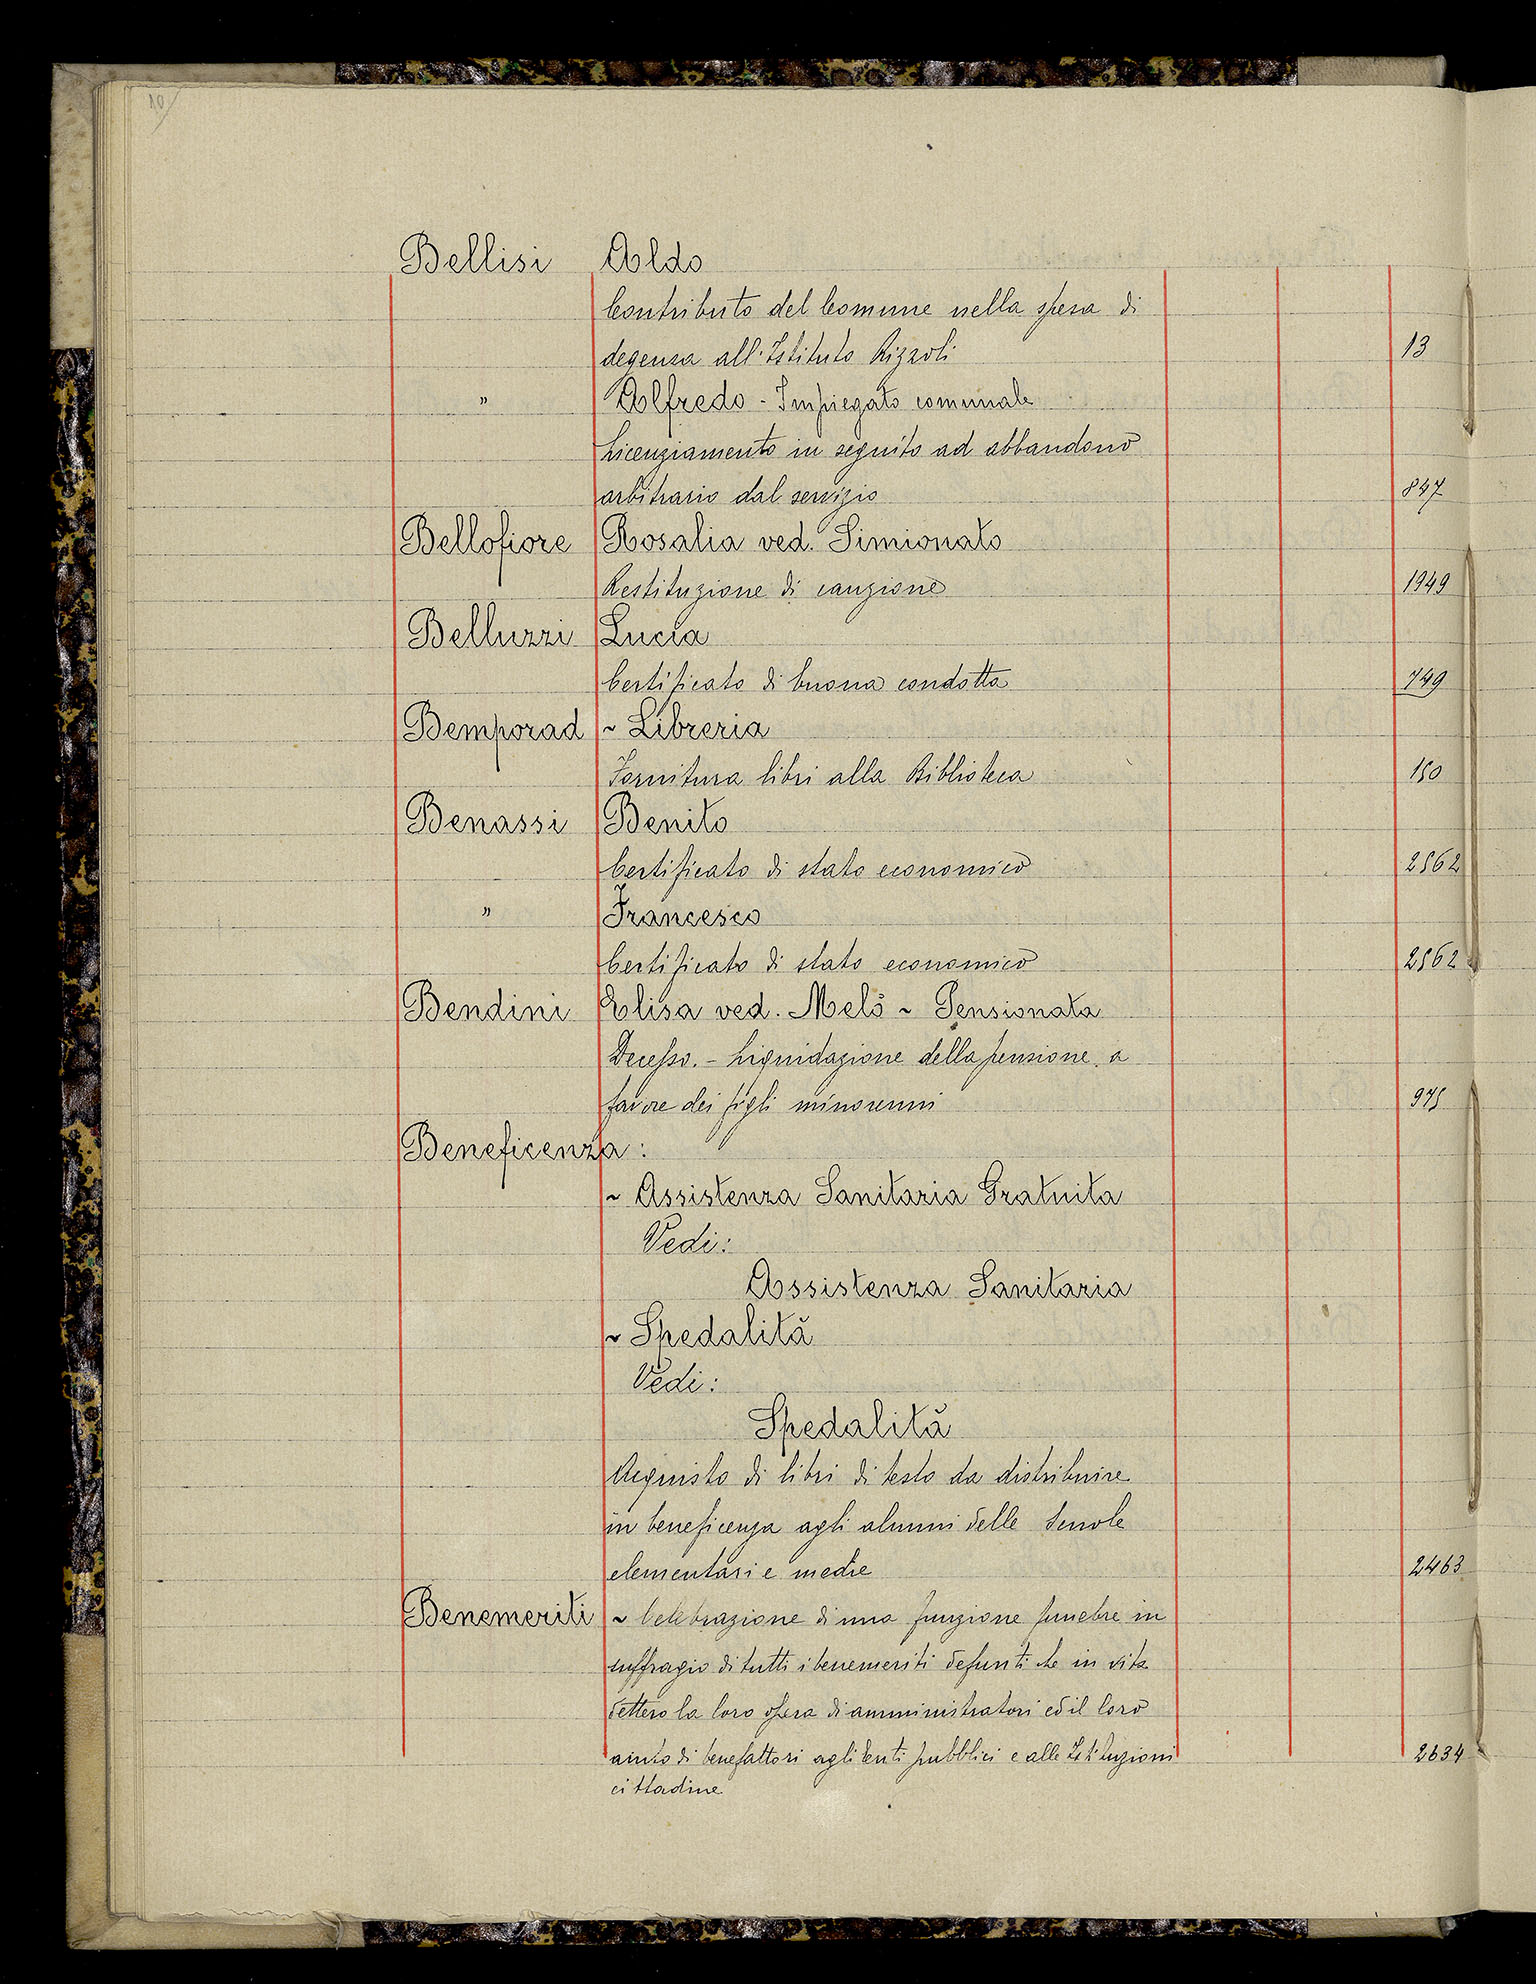 10
Bellisi Aldo
Contributo del Comune nella spesa di
degenza all'Istituto Rizzoli 13
" Alfredo - Impiegato comunale
Licenziamento in seguito ad abbandono
arbitrario dal servizio 847
Bellofiore Rosalia ved. Simionato
Restituzione di cauzione 1949
Belluzzi Lucia
Certificato di buona condotta 749
Bemporad ~ Libreria
Fornitura libri alla Biblioteca 150
Benassi Benito
Certificato di stato economico 2562
" Francesco
Certificato di stato economico 2562
Bendini Elisa ved. Melò ~ Pensionata
Decesso. - Liquidazione della pensione a
favore dei figli minorenni 975
Beneficenza :
~ Assistenza Sanitaria Gratuita
Vedi:
Assistenza Sanitaria
~ Spedalità
Vedi:
Spedalità
Acquisto di libri di testo da distribuire
in beneficenza agli alunni delle Scuole
elementari e medie 2463
Benemeriti ~ Celebrazione di una funzione funebre in
suffragio di tutti i benemeriti defunti che in vita
dettero la loro opera di amministratori ed il loro
aiuto di benefattori agli Enti pubblici e alle Istituzioni 2634
cittadine